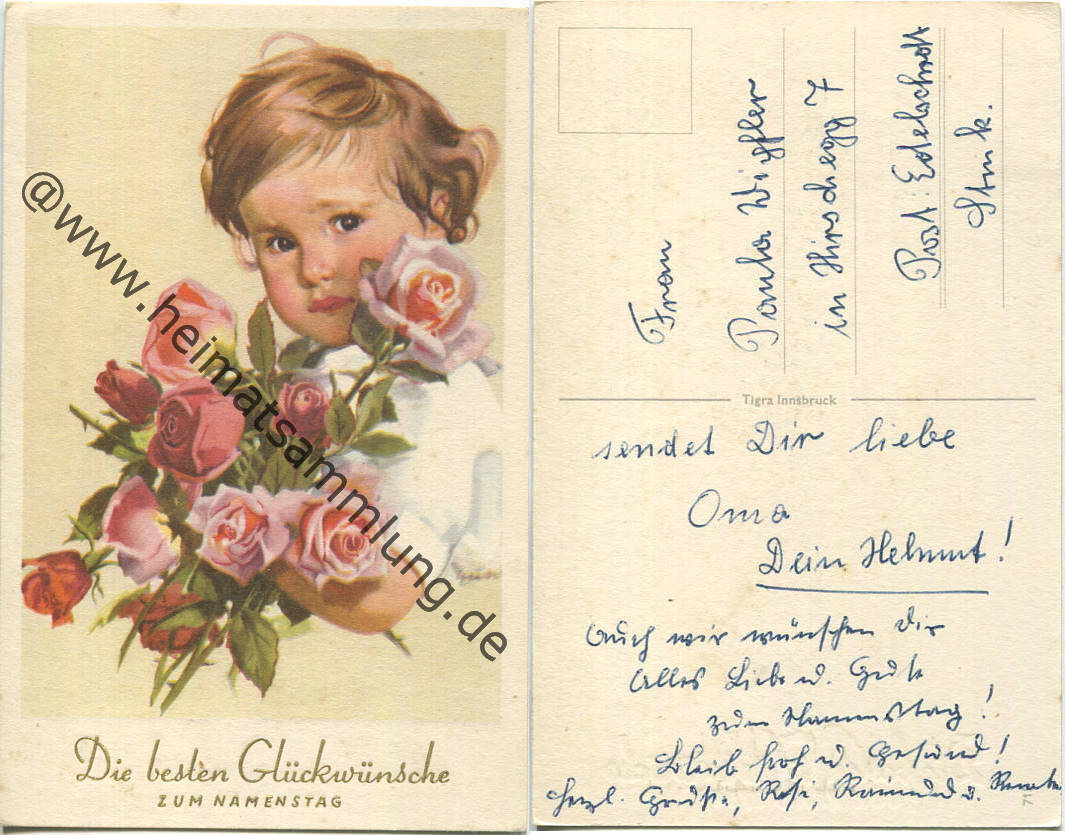 @www.heimatsammlung.de
Die besten Glückwünsche
ZUM NAMENSTAG
Frau
Paula
in Hirschegg 7
Post: Edelschrott
Stmk.
Tigra Innsbruck
sendet Dir liebe
Oma
Dein Helmut!
Auch wir wünschen Dir
Alles Liebe u. Gute
zum Namenstag!
Bleib froh u. Gesund!
Herzl. Grüße, Rosi, Raimund u. Renate
71